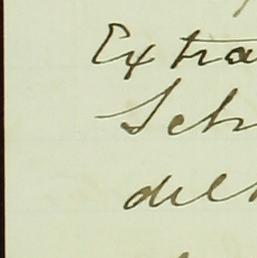 Extra
Schr
del